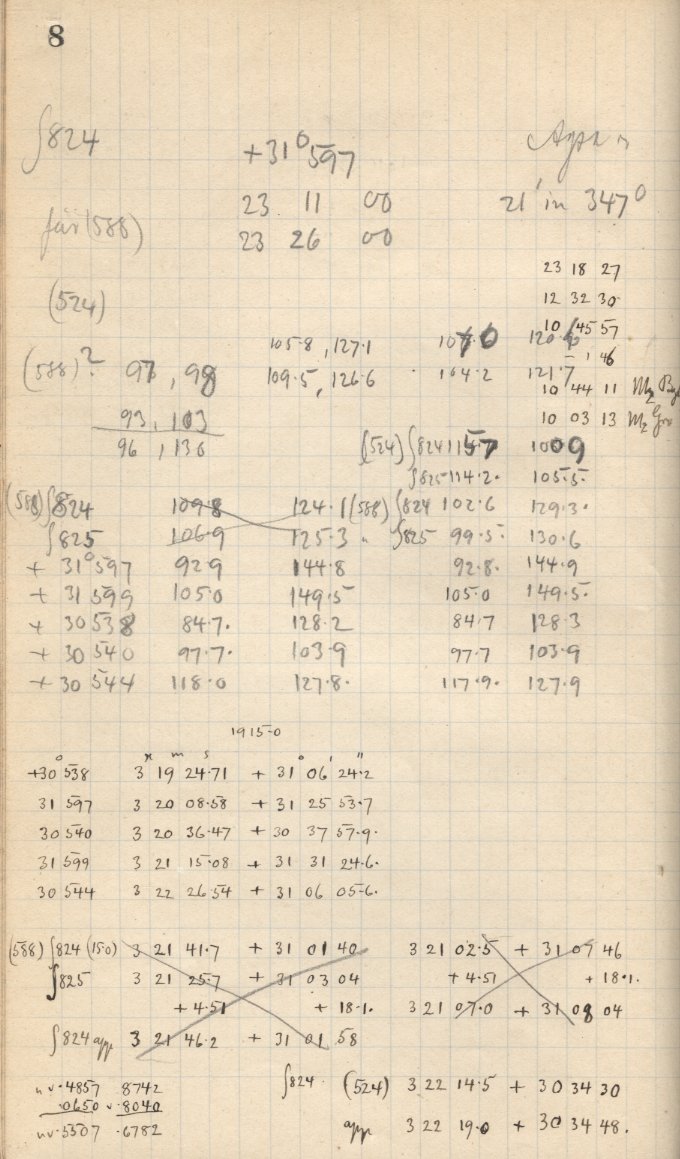 8
∫824
+31° 597
21' in 347°
23 11 00
für (588)
23 26 00
23 18 27
(524)
12 32 30
10 45 57
105.8, 127.1
1 46
(588)? 97, 98 109.5, 126.6 104.2 121.7
10 44 11
93, 103
10 03 13
96, 136
(524) ∫824 115.7 100.9
∫825 114.2 105.5
(588) ∫824 109.8 124.1 (588) ∫824 102.6 129.3
∫825 106.9 125.3 " ∫825 99.5 130.6
+ 31° 597 92.9 144.8 92.8 144.9
+ 31 599 105.0 149.5 105.0 149.5
+ 30 538 84.7 128.2 84.7 128.3
+ 30 540 97.7 103.9 97.7 103.9
+ 30 544 118.0 127.8 117.9 127.9
1915.0
+30° 538 3h 19m 24.71s + 31° 06' 24.2"
31 597 3 20 08.58 + 31 25 53.7
30 540 3 20 36.47 + 30 37 57.9
31 599 3 21 15.08 + 31 31 24.6
30 544 3 22 26.54 + 31 06 05.6
(588) ∫824 (15.0) 3 21 41.7 + 31 01 40 3 21 02.5 + 31 07 46
∫825 3 21 25.7 + 31 03 04 + 4.51 + 18.1
+ 4.51 + 18.1 3 21 07.0 + 31 08 04
∫824 app 3 21 46.2 + 31 01 58
∫824 (524) 3 22 14.5 + 30 34 30
.4857 8742
.0650 .8040
.5507 .6782
app 3 22 19.0 + 30 34 48.